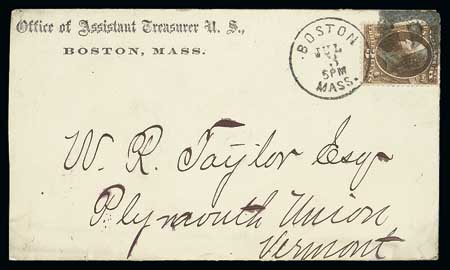 Office of Assistant Treasurer U. S.,
BOSTON, MASS.
BOSTON
JUL
3
5PM
MASS.
W. R. Taylor Esq
Plymouth Union
Vermont